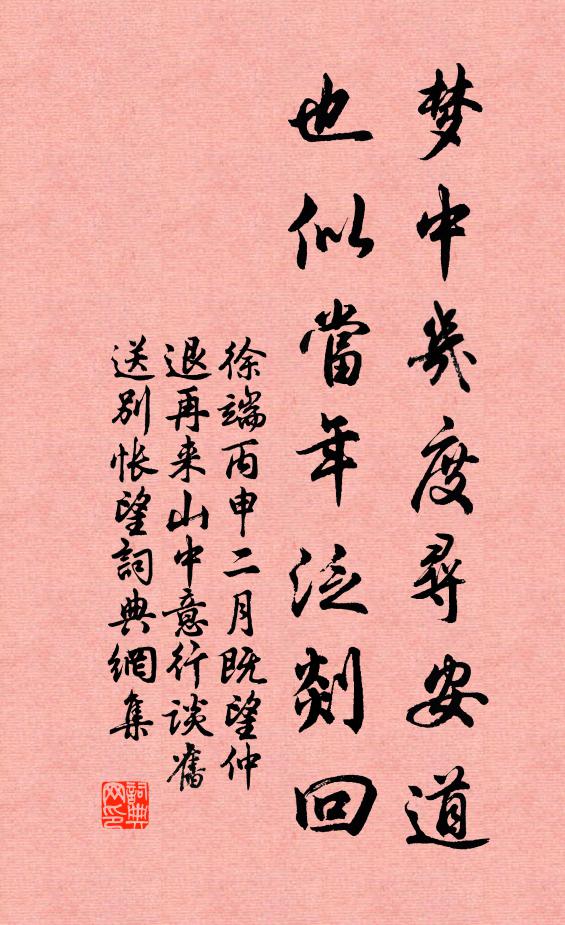 梦中幾度尋安道
也似當年泛剡回
徐端丙申二月既望仲
退再来山中意行谈舊
送别怅望詞典網集
詞典
网印